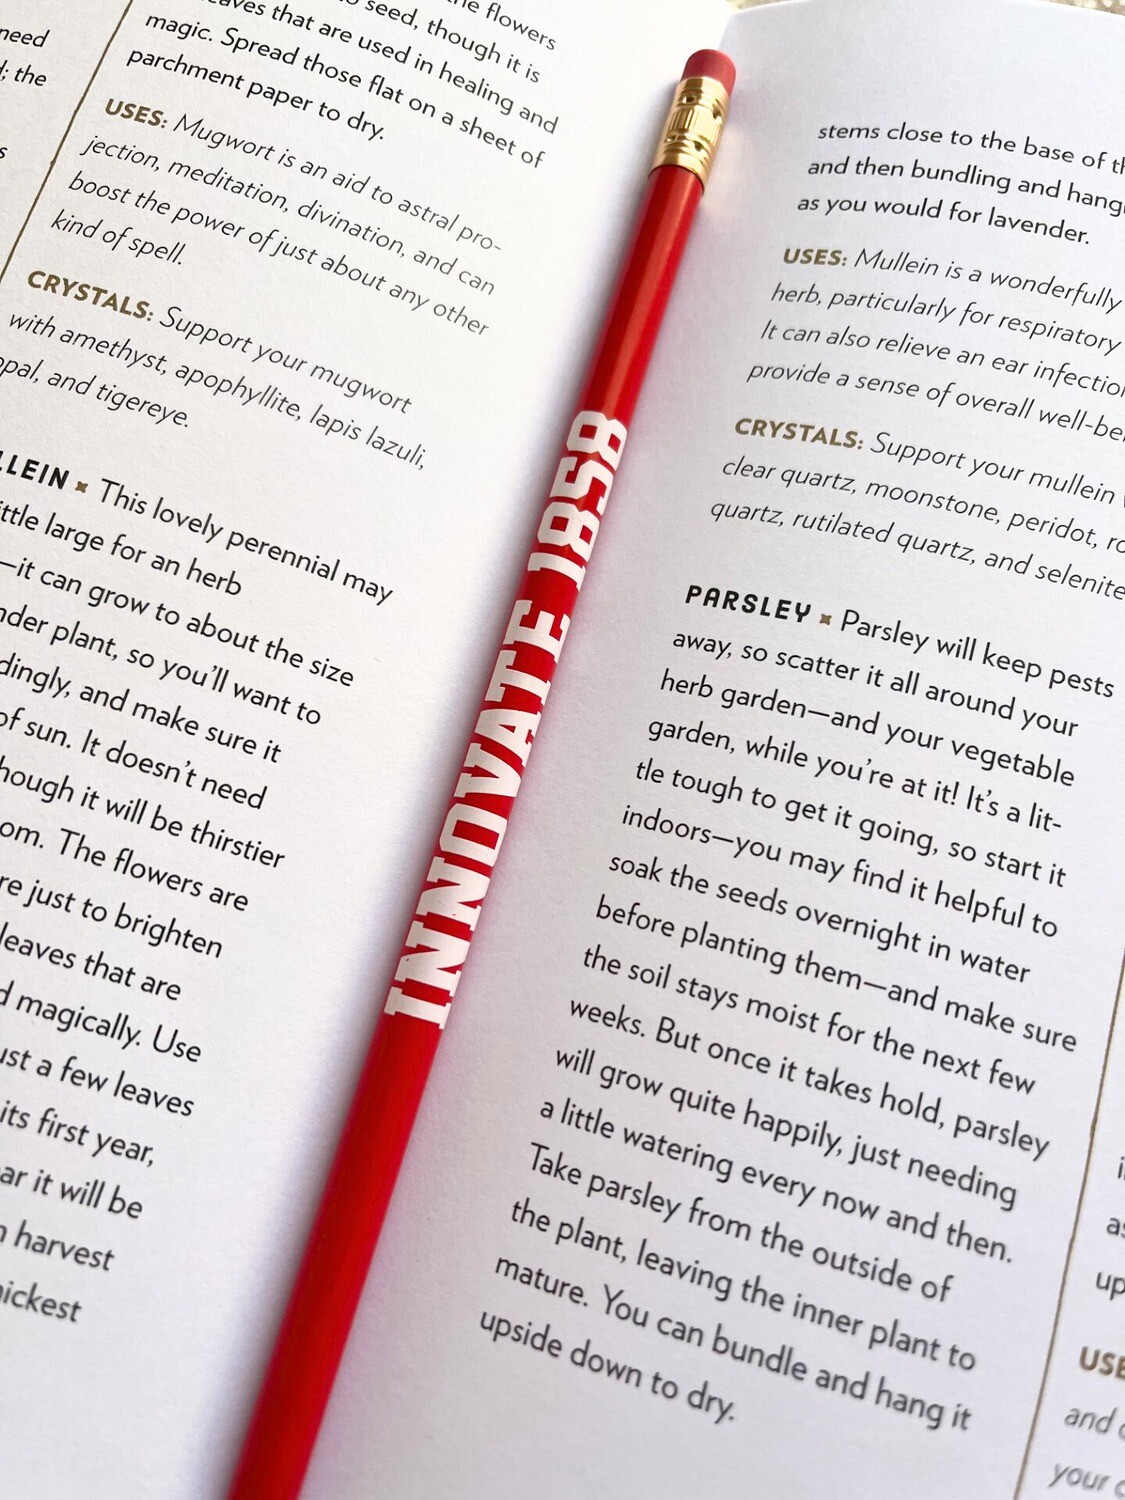 need
; the
s
the flowers
to seed, though it is
leaves that are used in healing and
magic. Spread those flat on a sheet of
parchment paper to dry.
USES: Mugwort is an aid to astral pro-
jection, meditation, divination, and can
boost the power of just about any other
kind of spell.
CRYSTALS: Support your mugwort
with amethyst, apophyllite, lapis lazuli,
opal, and tigereye.
LLEIN × This lovely perennial may
ittle large for an herb
—it can grow to about the size
nder plant, so you'll want to
dingly, and make sure it
of sun. It doesn't need
hough it will be thirstier
om. The flowers are
re just to brighten
leaves that are
d magically. Use
ust a few leaves
its first year,
ar it will be
n harvest
hickest
INNOVATE 1858
stems close to the base of th
and then bundling and hangi
as you would for lavender.
USES: Mullein is a wonderfully
herb, particularly for respiratory
It can also relieve an ear infection
provide a sense of overall well-be
CRYSTALS: Support your mullein
clear quartz, moonstone, peridot, ro
quartz, rutilated quartz, and selenite
PARSLEY × Parsley will keep pests
away, so scatter it all around your
herb garden—and your vegetable
garden, while you're at it! It's a lit-
tle tough to get it going, so start it
indoors—you may find it helpful to
soak the seeds overnight in water
before planting them—and make sure
the soil stays moist for the next few
weeks. But once it takes hold, parsley
will grow quite happily, just needing
a little watering every now and then.
Take parsley from the outside of
the plant, leaving the inner plant to
mature. You can bundle and hang it
upside down to dry.
as
up
USE
and
your